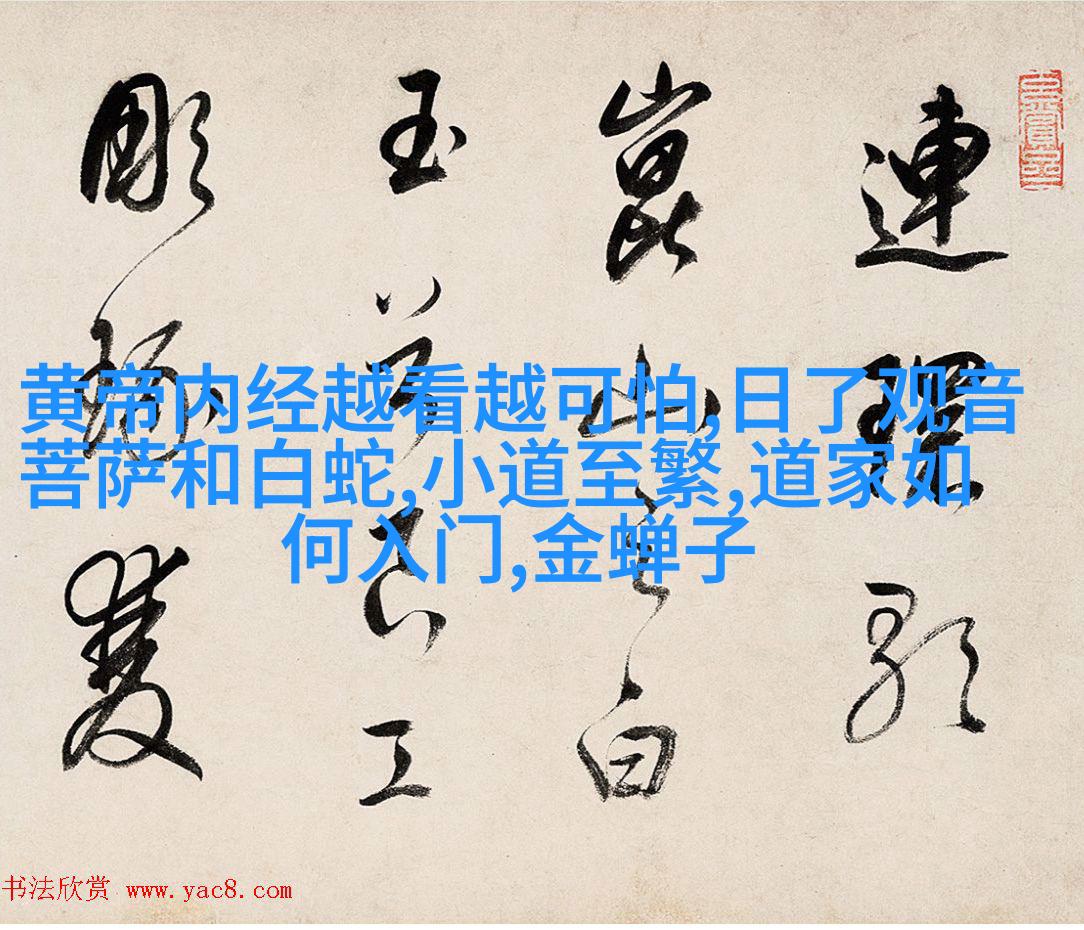 連環歌
崑山之白
玉兮工
彫雙
黄帝内经越看越可怕,日了观音
菩萨和白蛇,小道至繁,道家如
何入门,金蝉子
书法欣赏 www.yac8.com